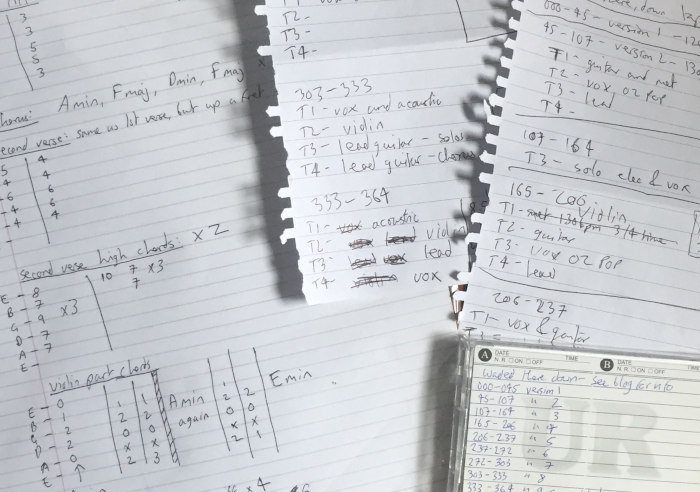 3
3
5
5
3
Amin, Fmaj, Dmin, Fmaj
second verse: same as 1st verse, but up a fret
5 4
4 4
6
6
4 4
second verse high chords: x2
10 7 x3
7
E - 8
B - 7
G - 9
D - 7
A - 7
E -
x3
violin part chords
E - 0
B - 1
G - 2
D - 2
A - 0
E
1 1
2 2
0 0
x x
2 3
Amin
again
Emin
T2-
T3-
T4-
303-333
T1- vox and acoustic
T2- violin
T3- lead guitar - solos
T4- lead guitar - chorus
333-364
T1- vox acoustic
T2- lead violin
T3- lead vox lead
T4- violin vox
000-45 - version 1 -
45-107 - version 2 -
T1- guitar and met
T2- vox, 02 POP
T3- lead
T4-
107-164
T3- solo elec & vox
165-206
T1- met 130bpm 3/4 time violin
T2- guitar
T3- vox 02 POP
T4- lead
206-237
T1- vox & guitar
A DATE TIME
N.R. ON OFF
B DATE TIME
N.R. ON OFF
Waded there down - see blog for info
000-045 version 1
45-107 " 2
107-164 " 3
165-206 " 4
206-237 " 5
237-272 " 6
272-303 " 7
303-333 " 8
333-364 " 9
UR